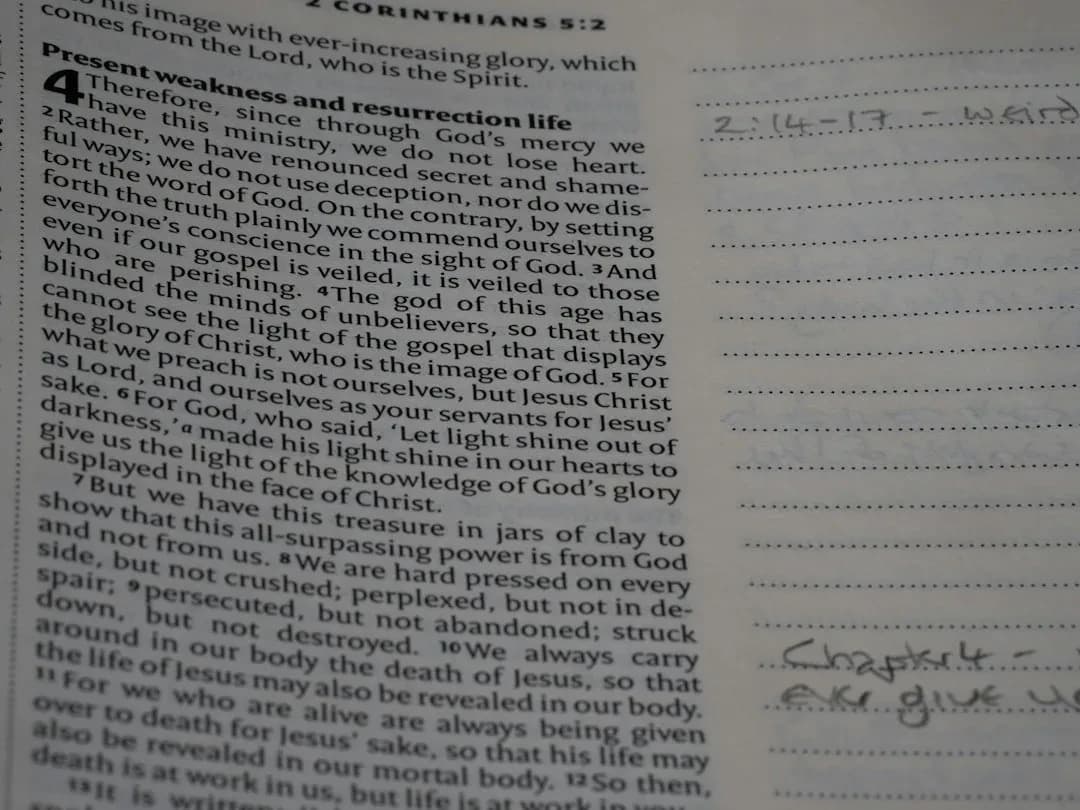 2 CORINTHIANS 5:2
his image with ever-increasing glory, which
comes from the Lord, who is the Spirit.
Present weakness and resurrection life
4 Therefore, since through God's mercy we
have this ministry, we do not lose heart.
2 Rather, we have renounced secret and shame-
ful ways; we do not use deception, nor do we dis-
tort the word of God. On the contrary, by setting
forth the truth plainly we commend ourselves to
everyone's conscience in the sight of God. 3 And
even if our gospel is veiled, it is veiled to those
who are perishing. 4 The god of this age has
blinded the minds of unbelievers, so that they
cannot see the light of the gospel that displays
the glory of Christ, who is the image of God. 5 For
what we preach is not ourselves, but Jesus Christ
as Lord, and ourselves as your servants for Jesus'
sake. 6 For God, who said, 'Let light shine out of
darkness,' a made his light shine in our hearts to
give us the light of the knowledge of God's glory
displayed in the face of Christ.
7 But we have this treasure in jars of clay to
show that this all-surpassing power is from God
and not from us. 8 We are hard pressed on every
side, but not crushed; perplexed, but not in de-
spair; 9 persecuted, but not abandoned; struck
down, but not destroyed. 10 We always carry
around in our body the death of Jesus, so that
the life of Jesus may also be revealed in our body.
11 For we who are alive are always being given
over to death for Jesus' sake, so that his life may
also be revealed in our mortal body. 12 So then,
death is at work in us, but life is at work in you.
13 It is written
2:14-17 - weird
Chapter 4 -
ever give